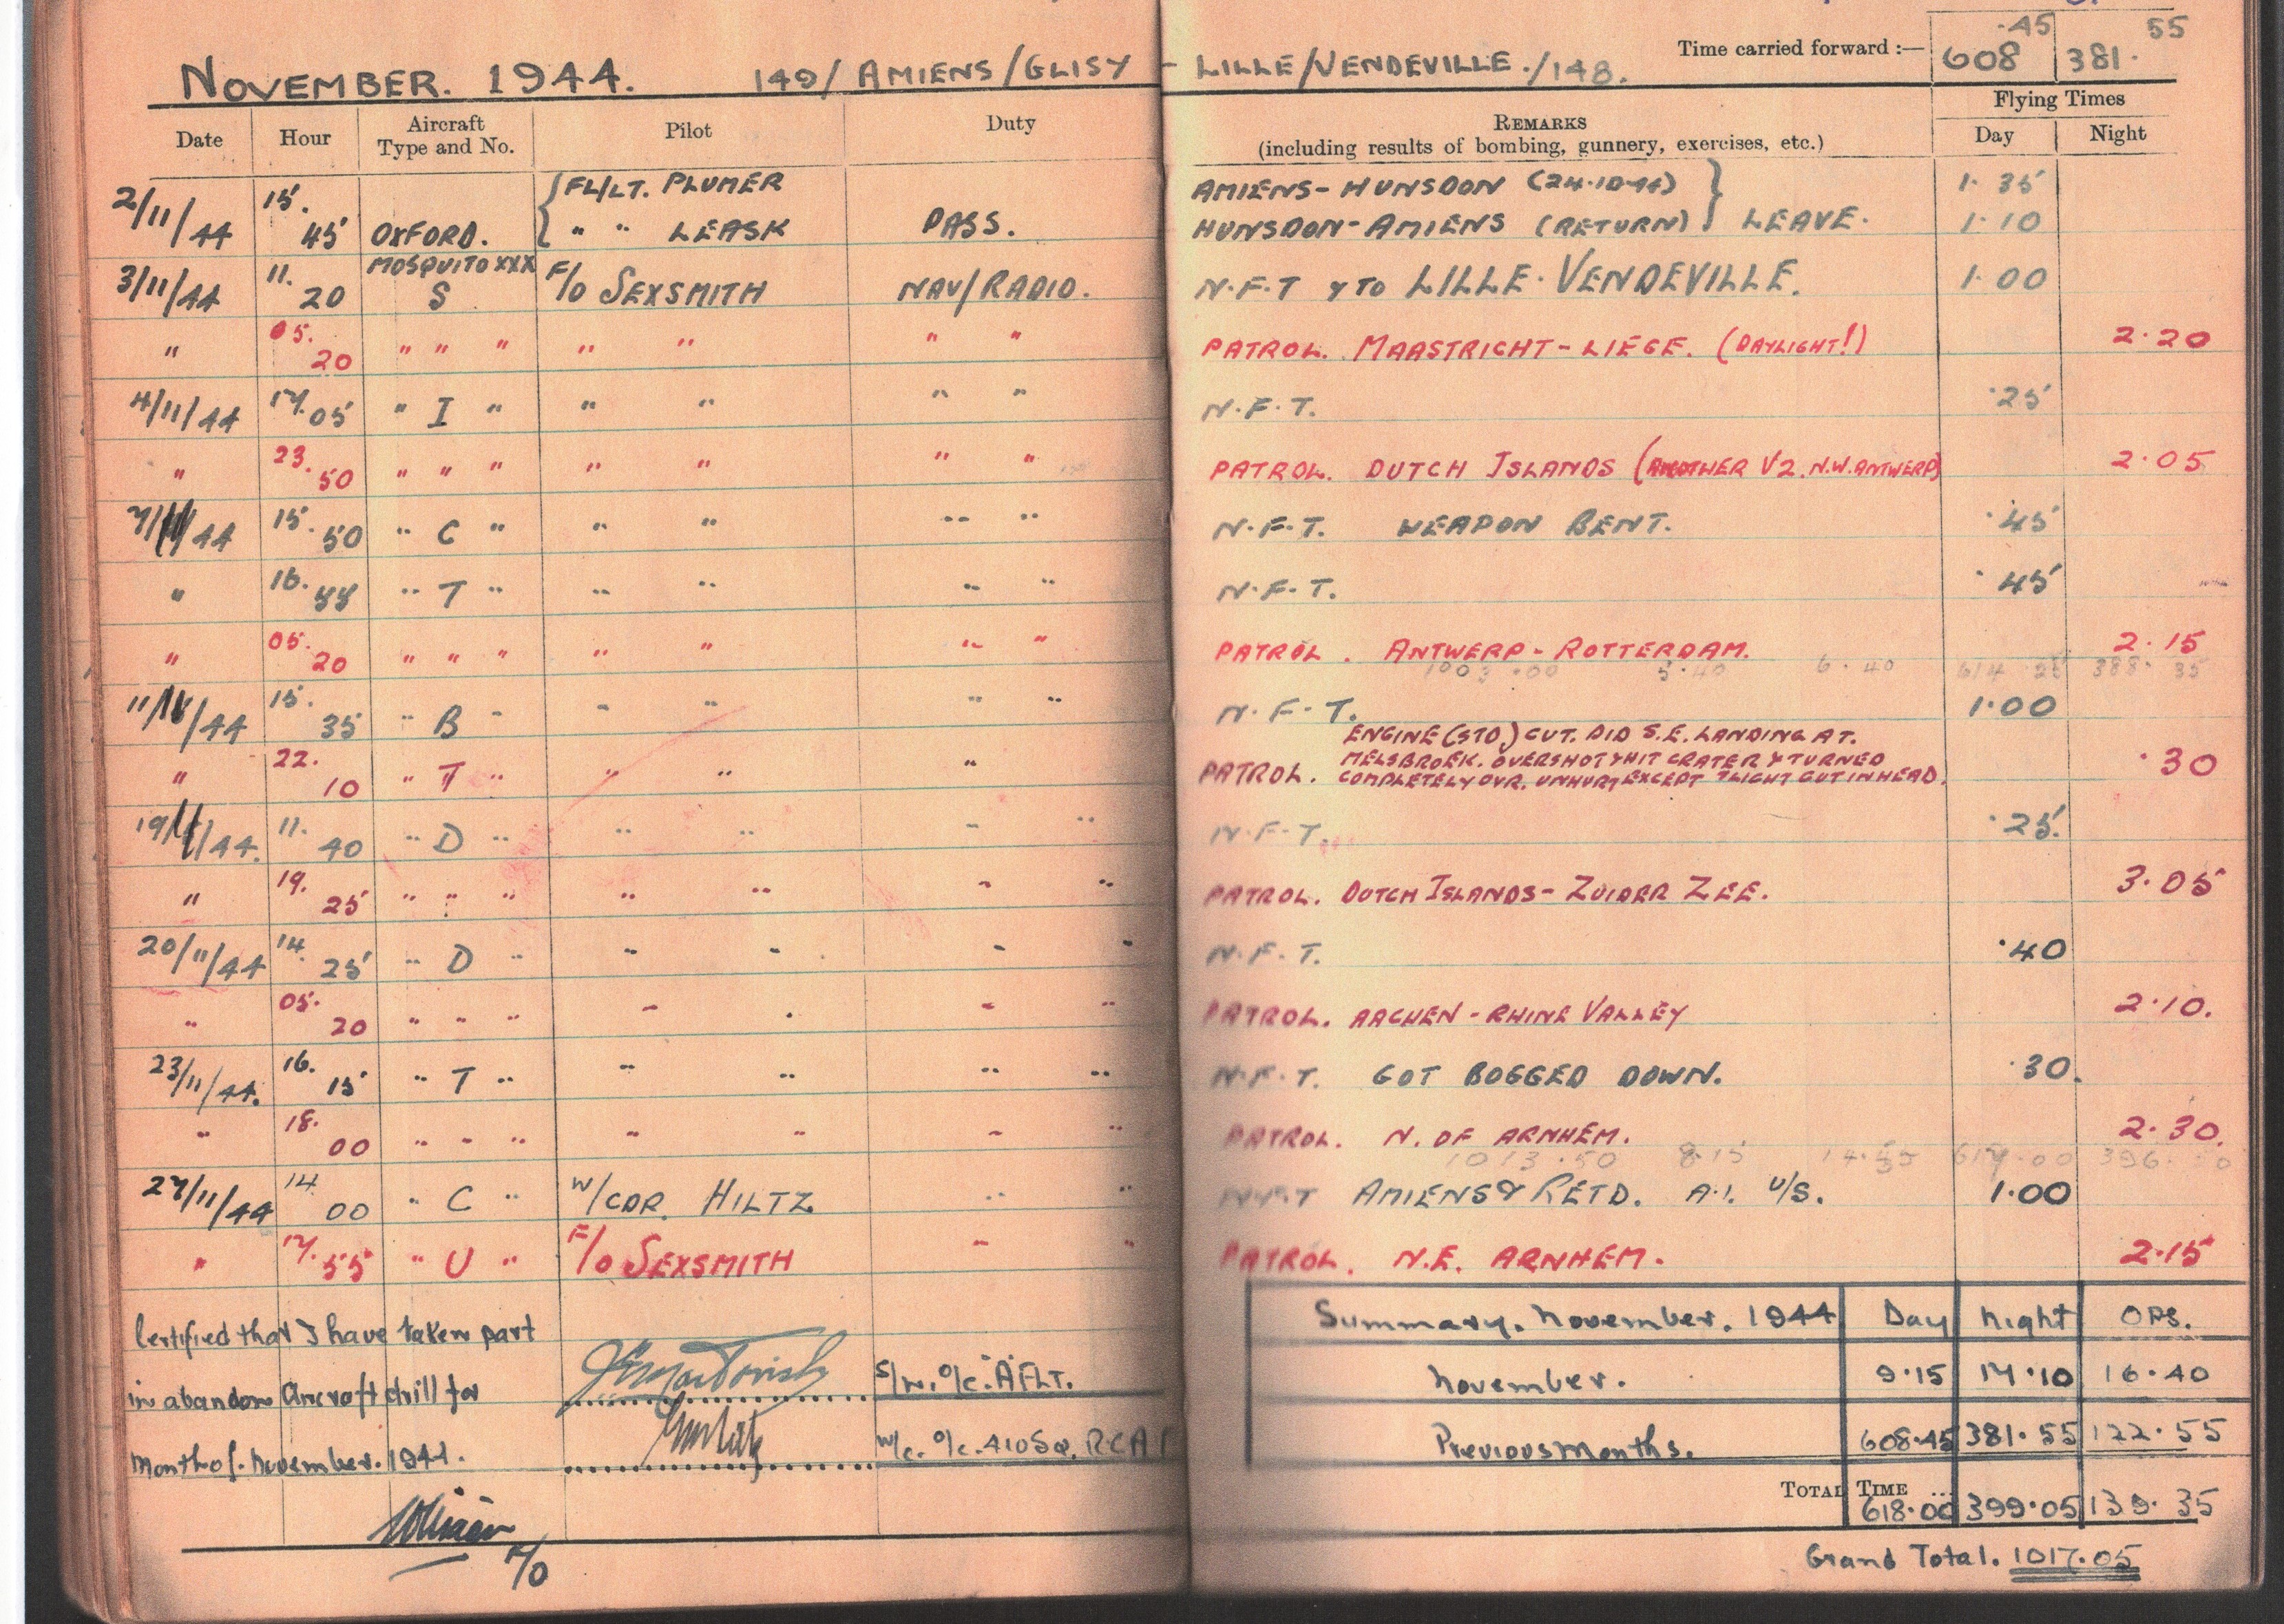 ·45 55
Time carried forward :— 608 381·
NOVEMBER. 1944. 149/ AMIENS/GLISY - LILLE/VENDEVILLE./148.
Date Hour Aircraft Type and No. Pilot Duty REMARKS (including results of bombing, gunnery, exercises, etc.) Flying Times Day Night
2/11/44 15.45 OXFORD. { FL/LT. PLUMER PASS. AMIENS-HUNSDON (24·10·44) } 1·35
" " LEASK HUNSDON-AMIENS (RETURN) } LEAVE. 1·10
3/11/44 11.20 MOSQUITO XXX S F/O SEXSMITH NAV/RADIO. N.F.T & TO LILLE·VENDEVILLE. 1·00
" 05.20 " " " " " " " PATROL. MAASTRICHT-LIEGE. (DAYLIGHT!) 2·20
4/11/44 17.05 " I " " " " " N.F.T. ·25
" 23.50 " " " " " " " PATROL. DUTCH ISLANDS (ANOTHER V2. N.W. ANTWERP) 2·05
7/11/44 15.50 " C " " " " " N.F.T. WEAPON BENT. ·45
" 16. " T " " " " " N.F.T. ·45
" 05.20 " " " " " " " PATROL. ANTWERP-ROTTERDAM. 2·15
1003·00 5·40 6·40 614 25 388· 35
11/11/44 15.35 " B " " " " " N.F.T. 1·00
" 22.10 " T " " " " PATROL. ENGINE (STD.) CUT. DID S.E. LANDING AT. ·30
MELSBROEK. OVERSHOT & HIT CRATER & TURNED
COMPLETELY OVR. UNHURT EXCEPT SLIGHT CUT IN HEAD.
19/11/44. 11.40 " D " " " " " N.F.T. ·25
" 19.25 " " " " " " " PATROL. DUTCH ISLANDS-ZUIDER ZEE. 3·05
20/11/44 14.25 " D " " " " " N.F.T. ·40
" 05.20 " " " " " " " PATROL. AACHEN-RHINE VALLEY 2·10.
23/11/44. 16.15 " T " " " " " N.F.T. GOT BOGGED DOWN. ·30.
" 18.00 " " " " " " " PATROL. N. OF ARNHEM. 2·30.
1013·50 8·15 617·00 396·
27/11/44 14.00 " C " W/CDR. HILTZ " " AMIENS & RETD. A.I. U/S. 1·00
" 17.55 " U " F/O SEXSMITH " " PATROL. N.E. ARNHEM. 2·15
Summary. November. 1944 Day Night OPS.
Certified that I have taken part
in abandon Aircraft drill for S/L. O/C. "A" FLT. November. 9·15 17·10 16·40
month of. November. 1944. W/C. O/C. 410 SQ. RCAF Previous Months. 608·45 381·55 122·55
TOTAL TIME ... 618·00 399·05 139·35
F/O
Grand Total. 1017·05